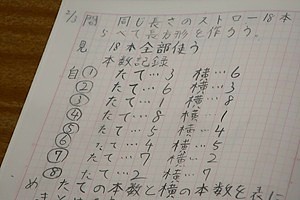 2/3 問 同じ長さのストロー18本
らべて長方形を作ろう。
見 18本全部使う
本数記録
自① たて…3 横…6
② たて…6 横…3
③ たて…1 横…8
④ たて…8 横…1
⑤ たて…5 横…4
⑥ たて…4 横…5
⑦ たて…7 横…2
⑧ たて…2 横…7
め たての本数と横の本数を表に